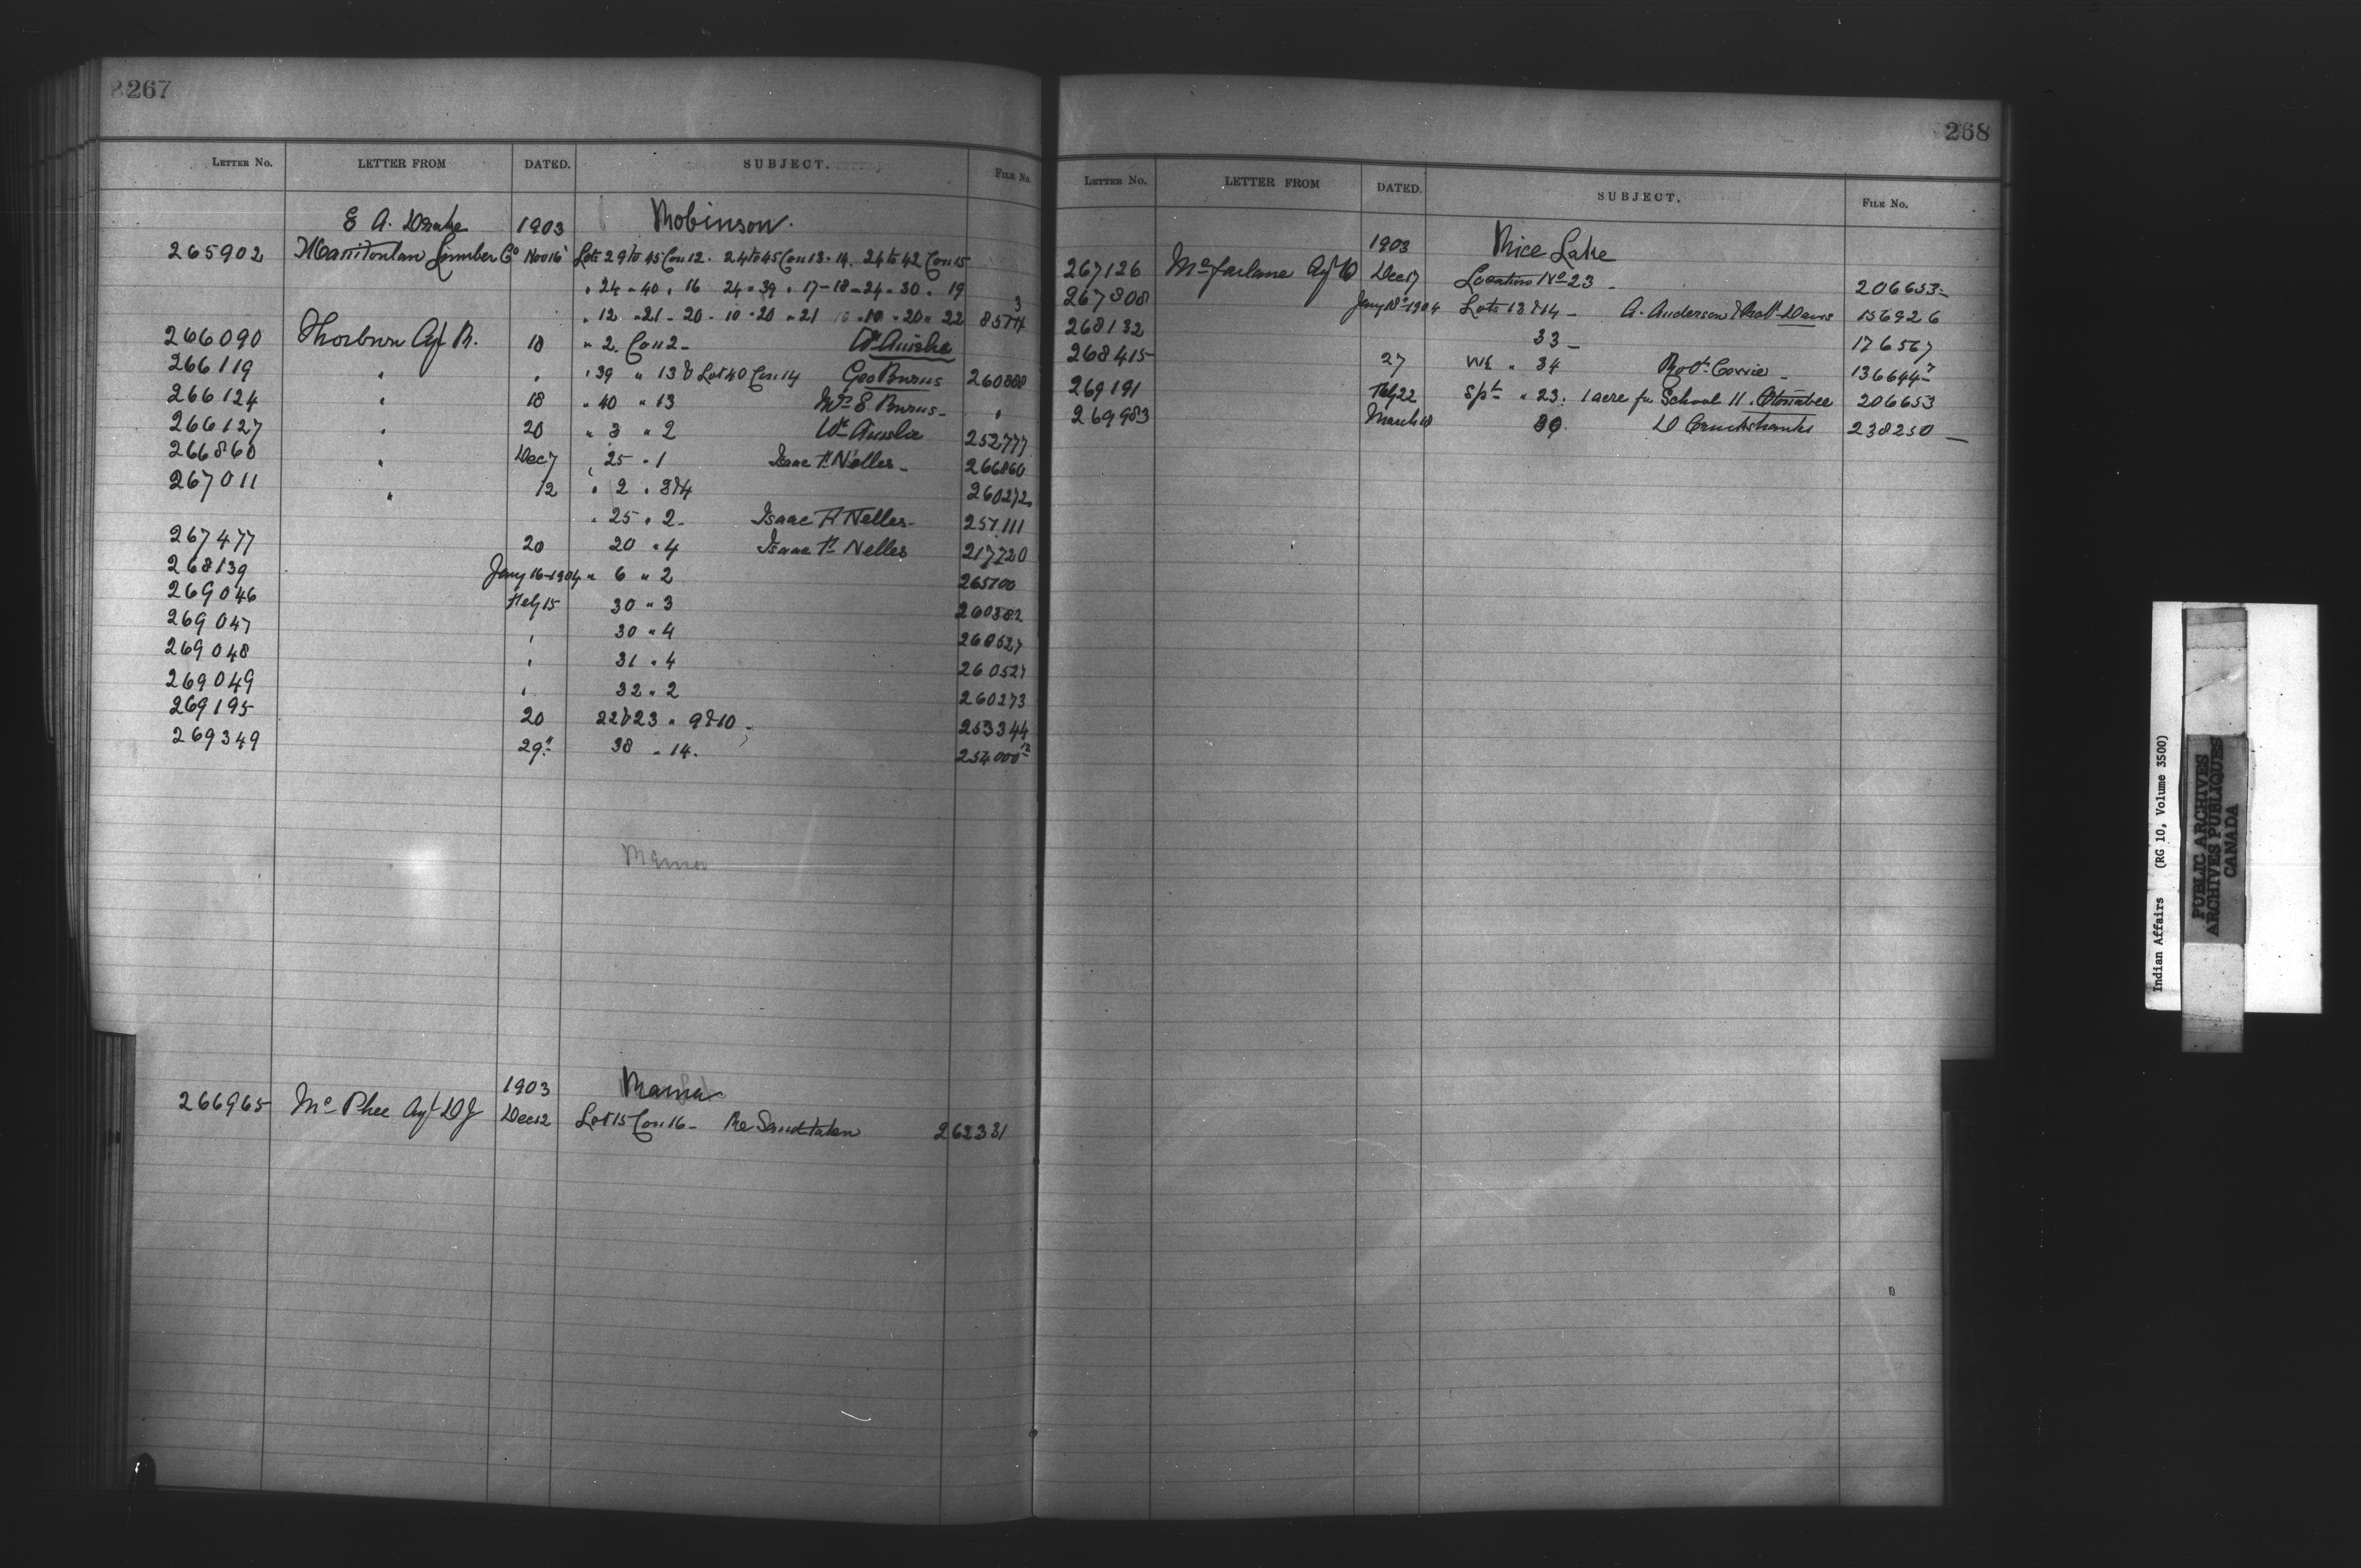 267
LETTER No. LETTER FROM DATED. SUBJECT. FILE No.
E A. Drake 1903 Robinson.
265902 Manitoulan Lumber Co Nov 16 Lots 29 to 45 Con 12. 24 to 45 Con 13 - 14. 24 to 42 Con 15
" 24 - 40 " 16 24 " 39 " 17-18-24-30 " 19
" 12 - 21 - 20 - 10 - 20 " 21 - 10 - 20 " 22 8574 3
266090 Thorburn Agt R. 18 " 2. Con 2 - Wm Ainslie
266119 " " " 39 " 13 & Lot 40 Con 14 Geo Burns 260888
266124 " 18 " 40 " 13 Mrs E Burns - "
266127 " 20 " 3 " 2 Wm Ainslie 252777
266860 " Dec 7 " 25 " 1 Isaac H Nelles - 266860
267011 " 12 " 2 " 3&4 260272
" 25 " 2 - Isaac H Nelles - 257111
267477 20 20 " 4 Isaac H Nelles 217720
268139 Jany 16-1904 " 6 " 2 265700
269046 Feby 15 30 " 3 260382
269047 " 30 " 4 260527
269048 " 31 " 4 260527
269049 " 32 " 2 260273
269195 20 22&23 " 9&10 253344
269349 29th 38 " 14. 254000
Rama
1903 Rama
266965 Mc Phee Agt D J Dec 12 Lot 15 Con 16 - Re Sand taken 262331
268
LETTER No. LETTER FROM DATED. SUBJECT. FILE No.
1903 Rice Lake
267126 McFarlane Agt W Dec 17 Location No 23 - 206653
267808 Jany 18-1904 Lots 13 & 14 - A. Anderson & Robt Davis 156926
268132 33 - 176567
268415 27 W½ " 34 Robt Corrie - 136644-7
269191 Feby 22 S/pt " 23. 1 acre for School H. Otonabee 206653
269983 March 18 30. D Cruickshanks 238250
Indian Affairs (RG 10, Volume 3500)
PUBLIC ARCHIVES
ARCHIVES PUBLIQUES
CANADA